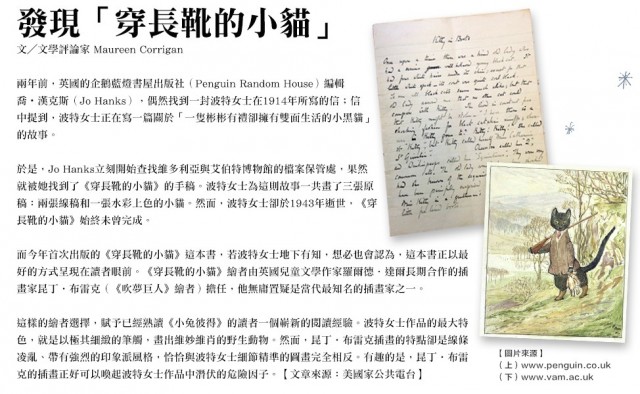 發現「穿長靴的小貓」
文／文學評論家 Maureen Corrigan
兩年前，英國的企鵝藍燈書屋出版社（Penguin Random House）編輯
喬，漢克斯（Jo Hanks），偶然找到一封波特女士在1914年所寫的信；信
中提到，波特女士正在寫一篇關於「一隻彬彬有禮卻擁有雙面生活的小黑貓」
的故事。
於是，Jo Hanks立刻開始查找維多利亞與艾伯特博物館的檔案保管處，果然
就被她找到了《穿長靴的小貓》的手稿。波特女士為這則故事一共畫了三張原
稿：兩張線稿和一張水彩上色的小貓。然而，波特女士卻於1943年逝世，《穿
長靴的小貓》始終未曾完成。
而今年首次出版的《穿長靴的小貓》這本書，若波特女士地下有知，想必也會認為，這本書正以最
好的方式呈現在讀者眼前。《穿長靴的小貓》繪者由英國兒童文學作家羅爾德．達爾長期合作的插
畫家昆丁．布雷克（《吹夢巨人》繪者）擔任，他無庸置疑是當代最知名的插畫家之一。
這樣的繪者選擇，賦予已經熟讀《小兔彼得》的讀者一個嶄新的閱讀經驗。波特女士作品的最大特
色，就是以極其細緻的筆觸，畫出維妙維肖的野生動物。然而，昆丁．布雷克插畫的特點卻是線條
凌亂、帶有強烈的印象派風格，恰恰與波特女士細節精準的圖畫完全相反。有趣的是，昆丁．布雷
克的插畫正好可以喚起波特女士作品中潛伏的危險因子。【文章來源：美國家公共電台】
Kitty in Boots
Once upon a time there was a
【圖片來源】
（上）www.penguin.co.uk
（下）www.vam.ac.uk